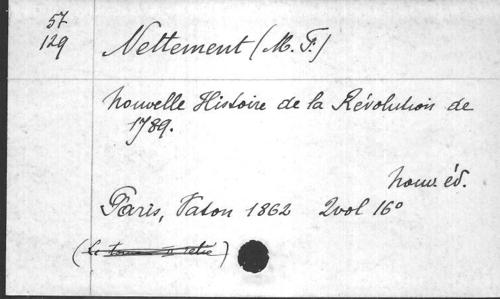 57
129
Nettement (M. F.)
Nouvelle Histoire de la Révolution de
1789.
nouv éd.
Paris, Vaton 1862 2vol 16°
(Le Tome II)